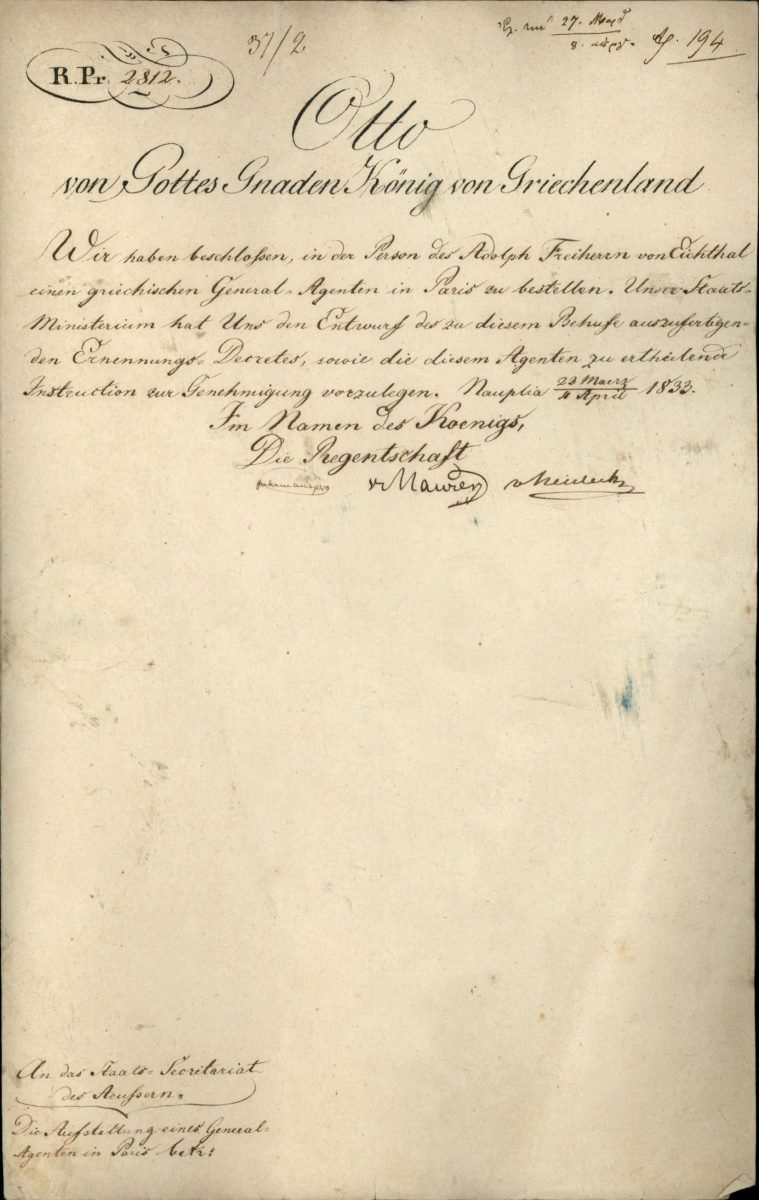 R. Pr. 2812.
37/2
27.
8.
194
Otto
von Gottes Gnaden König von Griechenland
Wir haben beschloßen, in der Person des Adolph Freiherrn von Eichthal
einen griechischen General-Agenten in Paris zu bestellen. Unser Staats-
Ministerium hat Uns den Entwurf des zu diesem Behufe auszufertigen-
den Ernennungs-Decretes, sowie die diesem Agenten zu ertheilende
Instruction zur Genehmigung vorzulegen. Nauplia 23 Maerz / 4 April 1833.
Im Namen des Koenigs,
Die Regentschaft
v. Maurer v. Heideck
An das Staats-Secretariat
des Aeußern.
Die Aufstellung eines General-
Agenten in Paris betr: